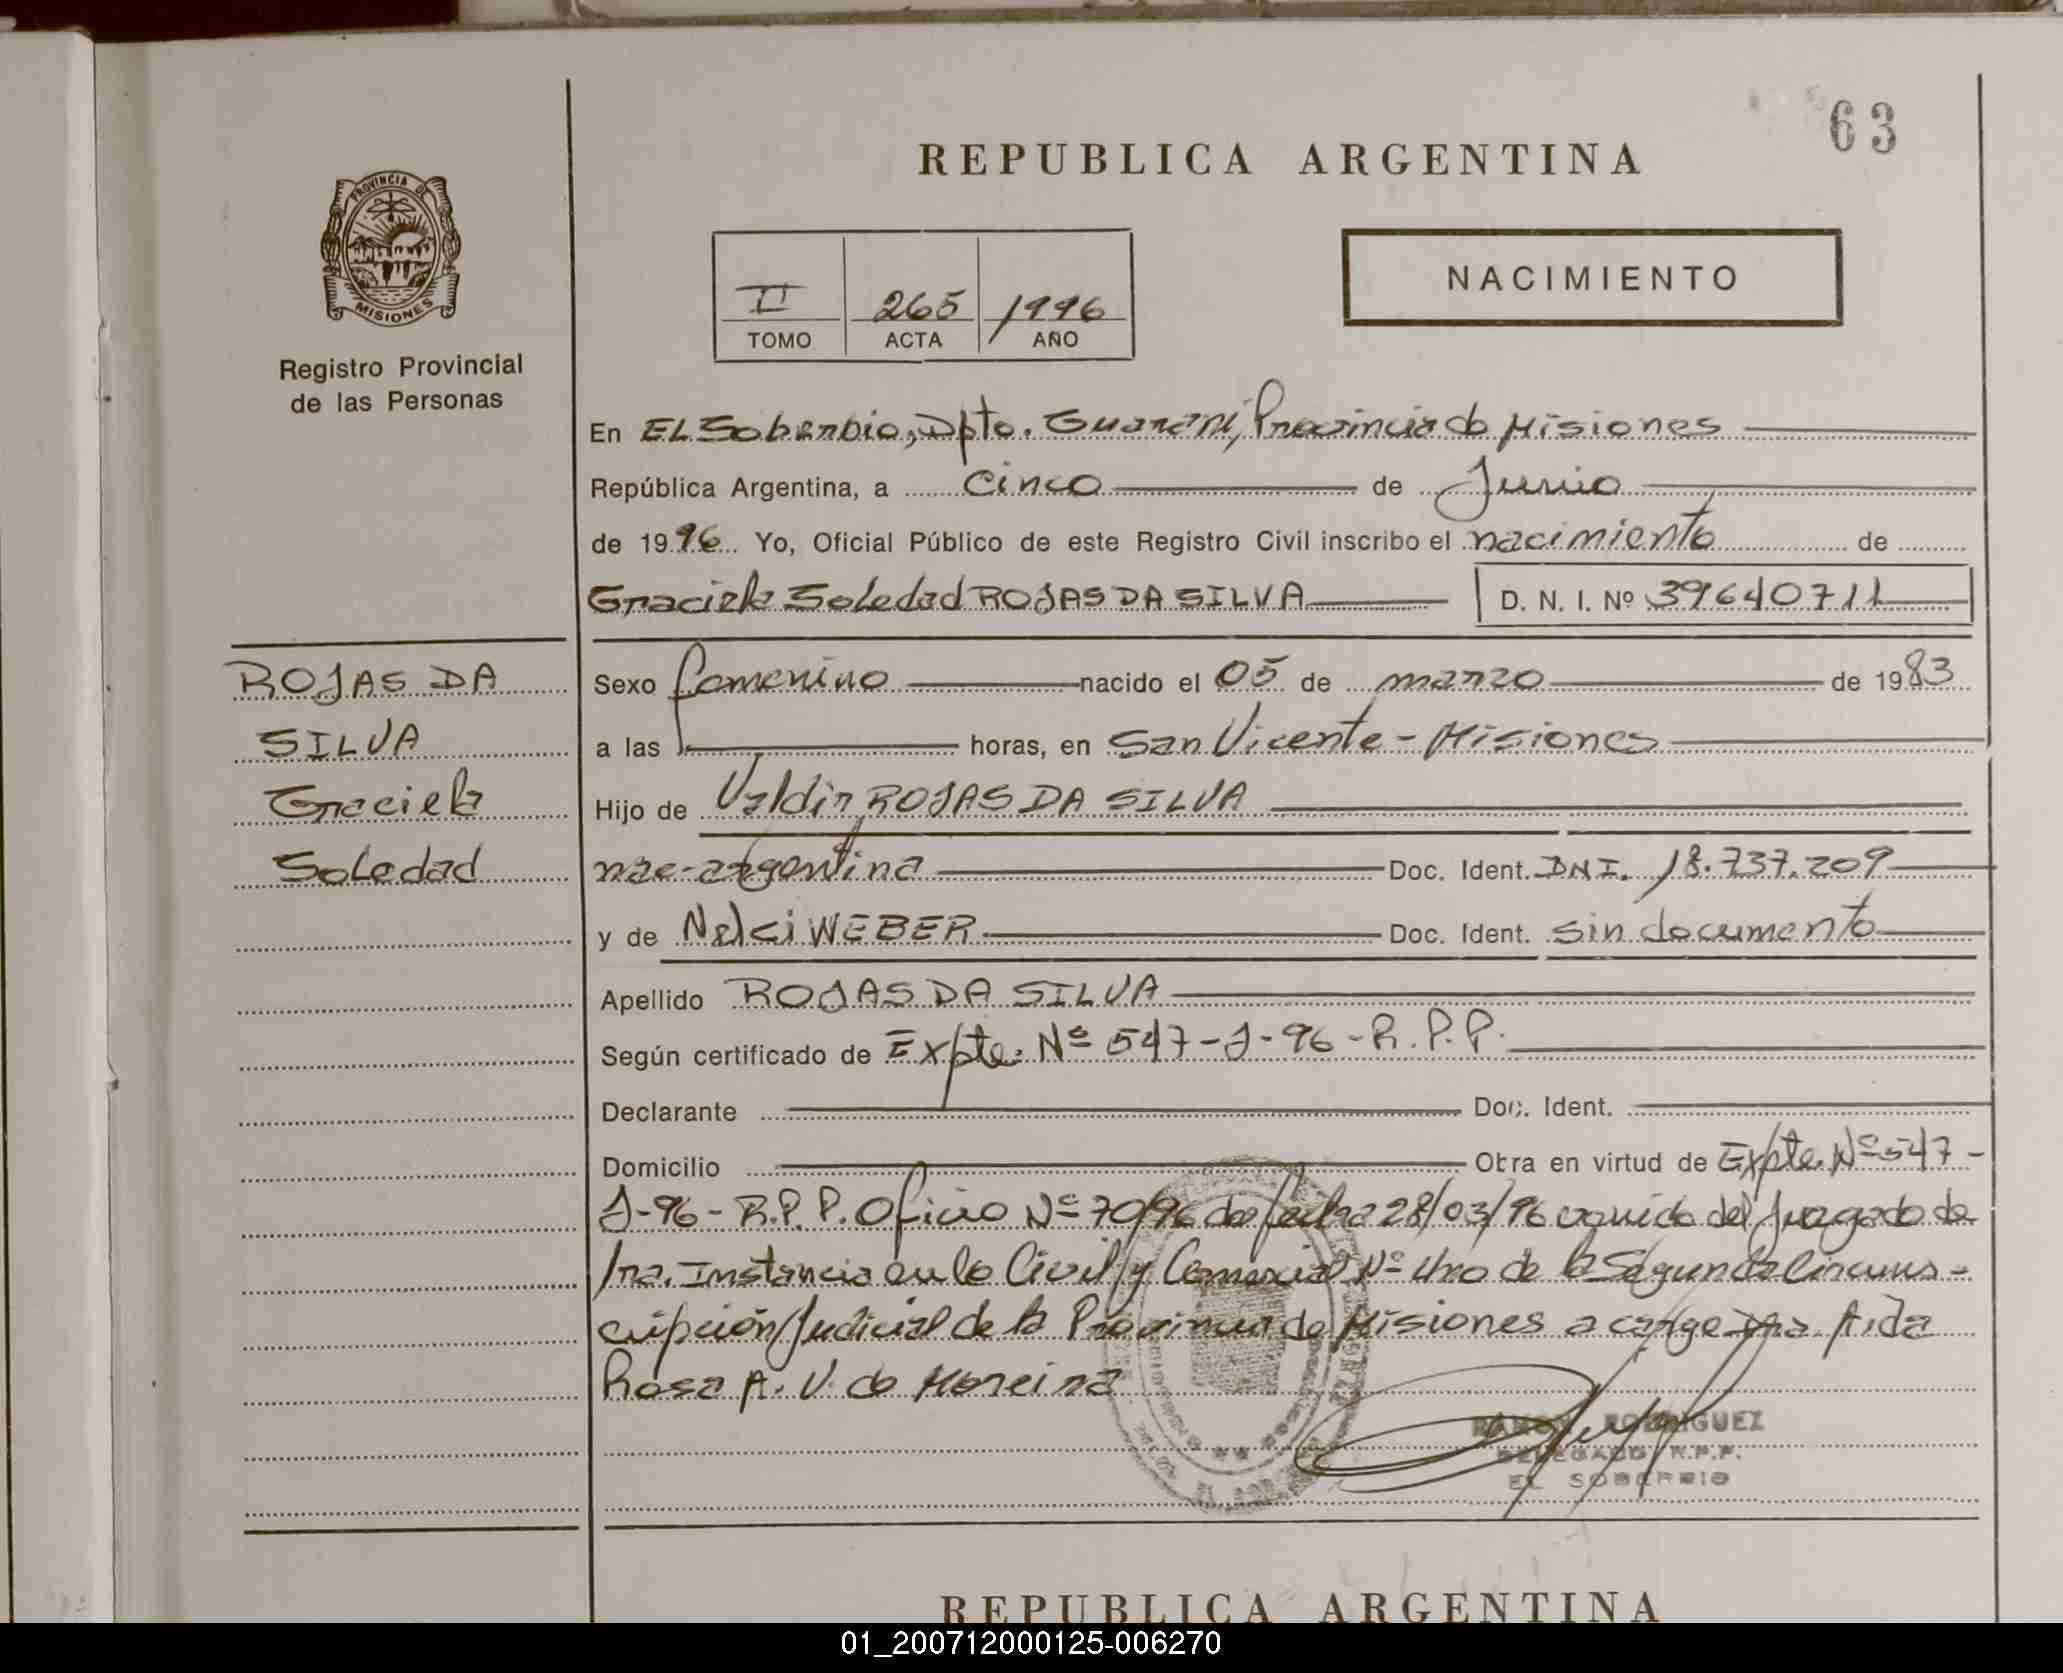 63
REPUBLICA ARGENTINA
PROVINCIA DE
MISIONES
Registro Provincial
de las Personas
NACIMIENTO
II 265 1996
TOMO ACTA AÑO
En EL Soberbio, Dpto. Guaraní, Provincia de Misiones
República Argentina, a cinco de Junio
de 1996 Yo, Oficial Público de este Registro Civil inscribo el nacimiento de
Graciela Soledad ROJAS DA SILVA D. N. I. Nº 39640711
ROJAS DA
SILVA
Graciela
Soledad
Sexo femenino nacido el 05 de marzo de 1983
a las horas, en San Vicente - Misiones
Hijo de Valdir ROJAS DA SILVA
nac. argentina Doc. Ident. DNI. 18.737.209
y de Nelci WEBER Doc. Ident. sin documento
Apellido ROJAS DA SILVA
Según certificado de Expte. Nº 547-J-96-R.P.P.
Declarante Doc. Ident.
Domicilio Obra en virtud de Expte. Nº 547-
J-96-R.P.P. Oficio Nº 70/96 de fecha 28/03/96 venido del Juzgado de
1ra. Instancia en lo Civil y Comercial Nº Uno de la Segunda Circuns-
cripción Judicial de la Provincia de Misiones a cargo Dra. Aida
Rosa A. V. de Moreira
RAMON RODRIGUEZ
DELEGADO R.P.P.
EL SOBERBIO
REPUBLICA ARGENTINA
01_200712000125-006270